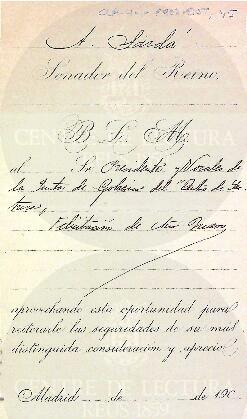 A. Sardá
Senador del Reino,
B. L. M.
al Sr. Presidente y Vocales de
la Junta de Gobierno del Centro de Lec
tura,
aprovechando esta oportunidad para
reiterarle las seguridades de su más
distinguida consideración y aprecio.
Madrid de de 190
CENTRE DE LECTURA
REUS 1859